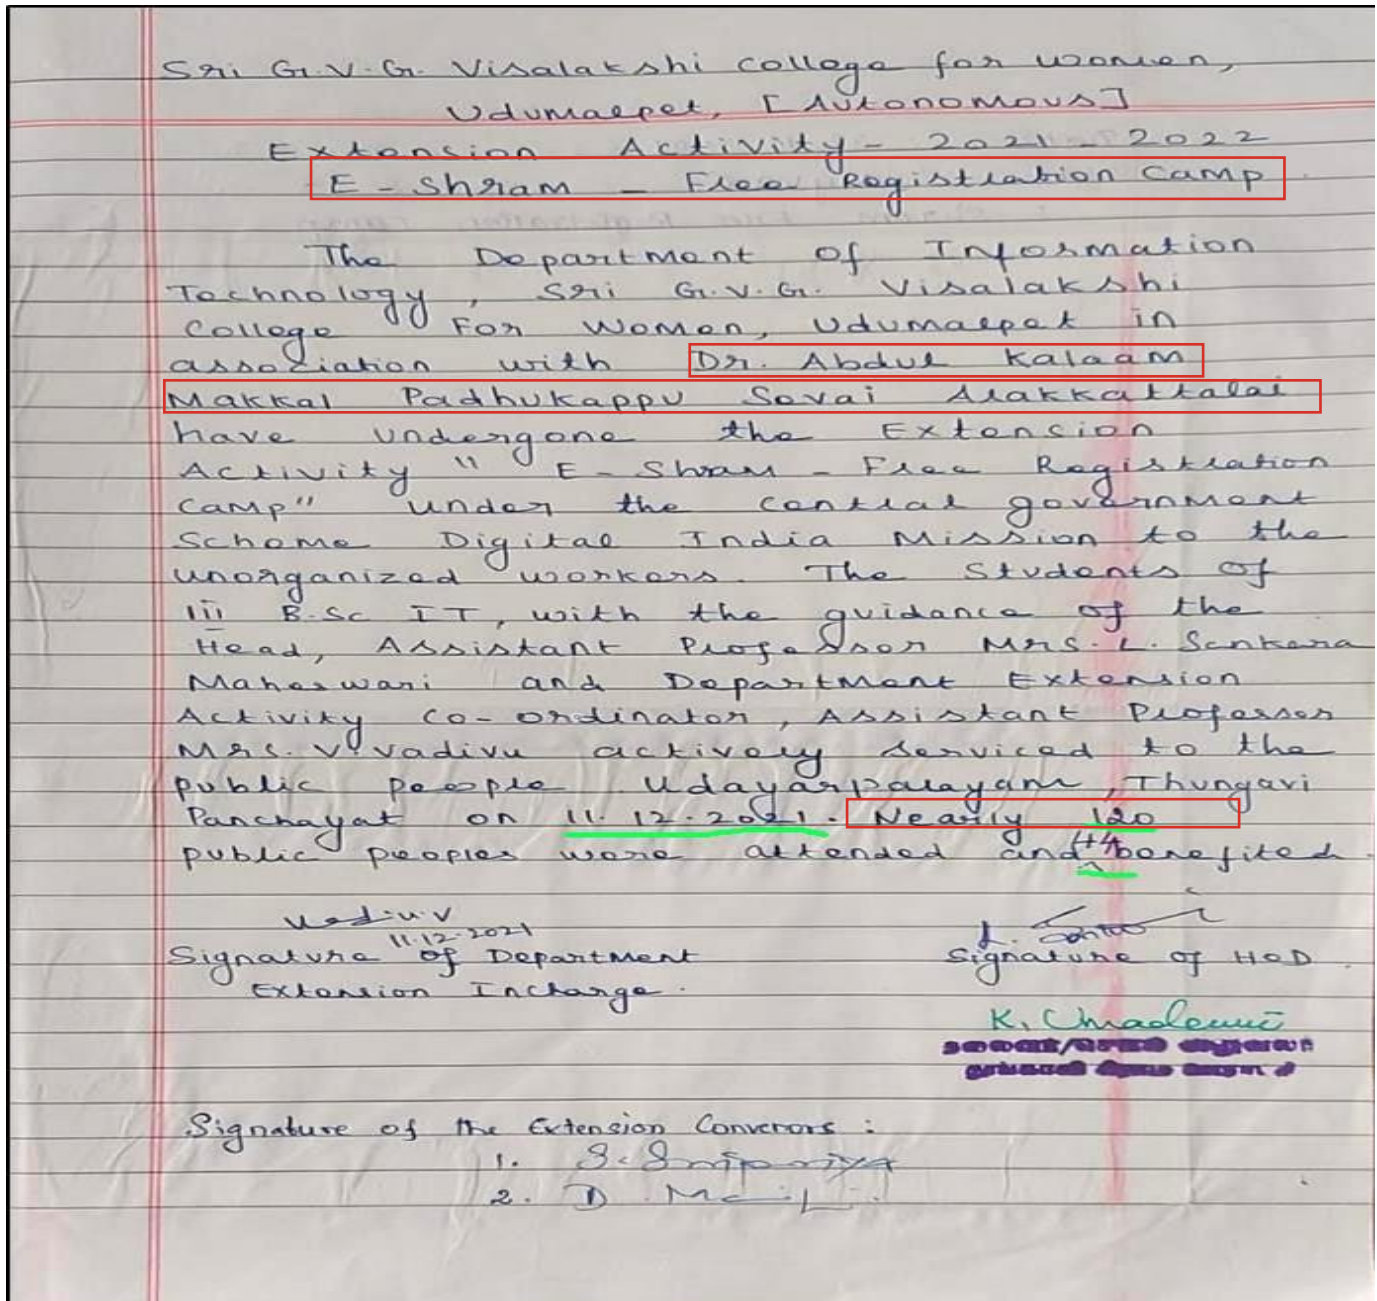 Sri G.V.G. Visalakshi college for women,
Udumalpet, [Autonomous]
Extension Activity - 2021 - 2022
E - Shram - Free Registration Camp
The Department of Information
Technology, Sri G.V.G. Visalakshi
College For Women, Udumalpet in
association with Dr. Abdul Kalaam
Makkal Padhukappu Sevai Arakkattalai
have undergone the Extension
Activity " E - Shram - Free Registration
Camp" under the central government
Scheme Digital India Mission to the
unorganized workers. The Students of
III B.Sc IT, with the guidance of the
Head, Assistant Professor Mrs. L. Sankara
Maheswari and Department Extension
Activity Co-ordinator, Assistant Professor
Mrs. V. Vadivu actively serviced to the
public people Udayarpalayam, Thungavi
Panchayat on 11.12.2021. Nearly 120
public peoples were attended and benefited.
Vadivu.V
11.12.2021
Signature of Department
Extension Incharge.
Signature of HOD.
K.
Signature of the Extension Convenors :
1. S.
2. D.